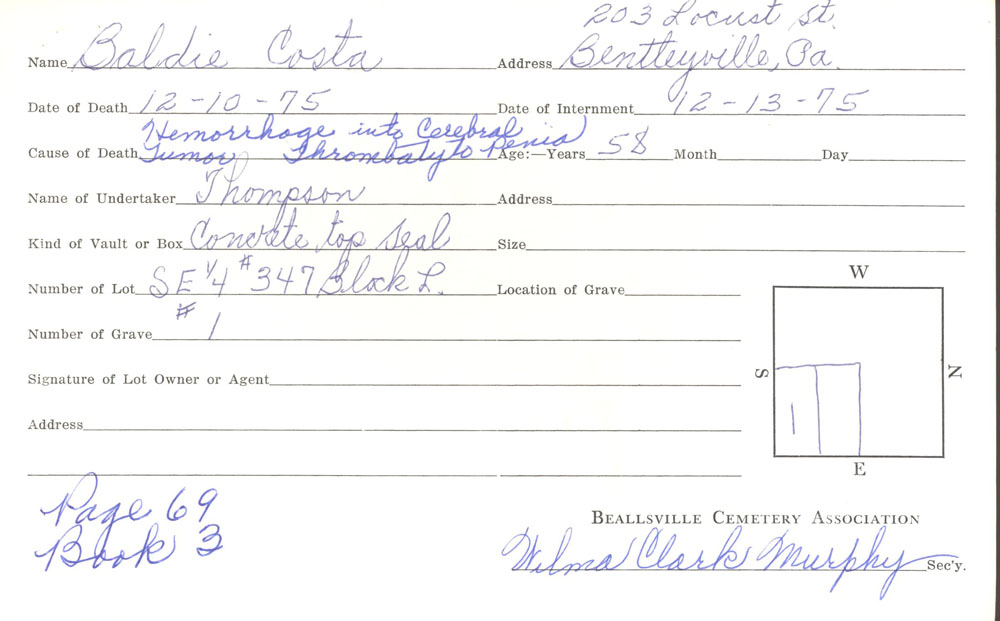 203 Locust St.
Name Baldie Costa Address Bentleyville, Pa.
Date of Death 12-10-75 Date of Internment 12-13-75
Hemorrhage into Cerebral
Cause of Death Tumor Thrombatyto Penia Age:—Years 58 Month Day
Name of Undertaker Thompson Address
Kind of Vault or Box Concrete top Seal Size
Number of Lot SE 1/4 #347 Block L. Location of Grave
Number of Grave # 1
Signature of Lot Owner or Agent
Address
W
S
N
1
E
Page 69
Book 3
BEALLSVILLE CEMETERY ASSOCIATION
Wilma Clark Murphy Sec'y.